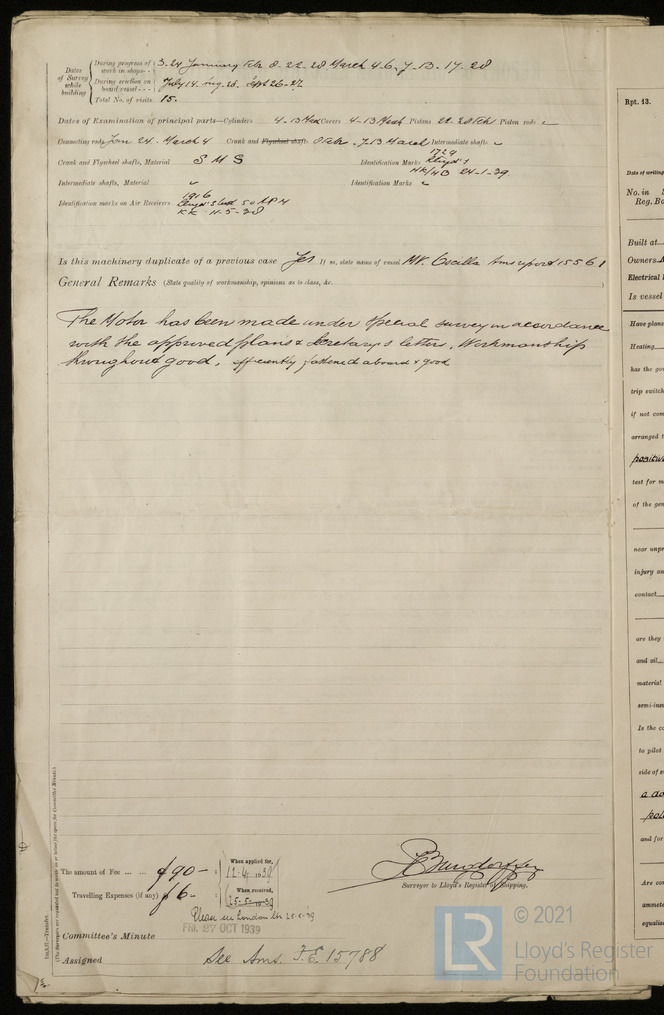 Dates of Survey while building
During progress of work in shops - - 3. 24 January Feb. 8. 22. 28 March 4. 6. 7. 13. 17. 28
During erection on board vessel - - - July 14. Aug. 28. Sept 26-27
Total No. of visits 15.
Dates of Examination of principal parts—Cylinders 4-13 Covers 4-13 Pistons 22. 28 Feb Piston rods
Connecting rods Jan 24. March 4 Crank and Flywheel shafts 8 Feb. 7.13 March Intermediate shafts
Crank and Flywheel shafts, Material S M S Identification Marks 1729 Lloyd's HK/HB 24-1-39
Intermediate shafts, Material Identification Marks
Identification marks on Air Receivers 1916 Lloyd's test KK 11-5-38
Is this machinery duplicate of a previous case Yes If so, state name of vessel MV. Oscilla Ams report 15561
General Remarks (State quality of workmanship, opinions as to class, &c.
The Motor has been made under special survey in accordance
with the approved plans & Secretary's letters. Workmanship
throughout good. efficiently fastened aboard & good
The amount of Fee ... ... £90-
Travelling Expenses (if any) £6-
When applied for, 12.4.1939
When received, 25-5-1939
in London 25-5-39
Surveyor to Lloyd's Register of Shipping.
Committee's Minute FRI. 27 OCT 1939
Assigned See Ams. F.E 15788
LR
© 2021
Lloyd's Register
Foundation
Rpt. 13.
Date of writing
No. in
Reg. Bo
Built at
Owners
Electrical
Is vessel
Have plans
Heating
has the go
trip switch
if not com
arranged t
positive
test for m
of the gen
near unpr
injury an
contact
are they
and oil
material
semi-ins
Is the co
to pilot
side of s
and for
Are co
ammete
equalise